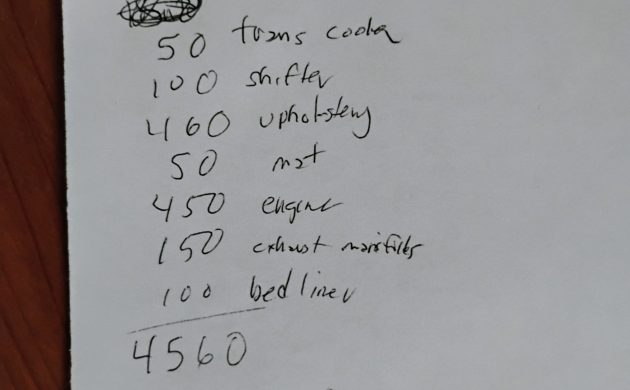 50 trans cooler
100 shifter
460 upholstery
50 mat
450 engine
150 exhaust manifolds
100 bed liner
4560